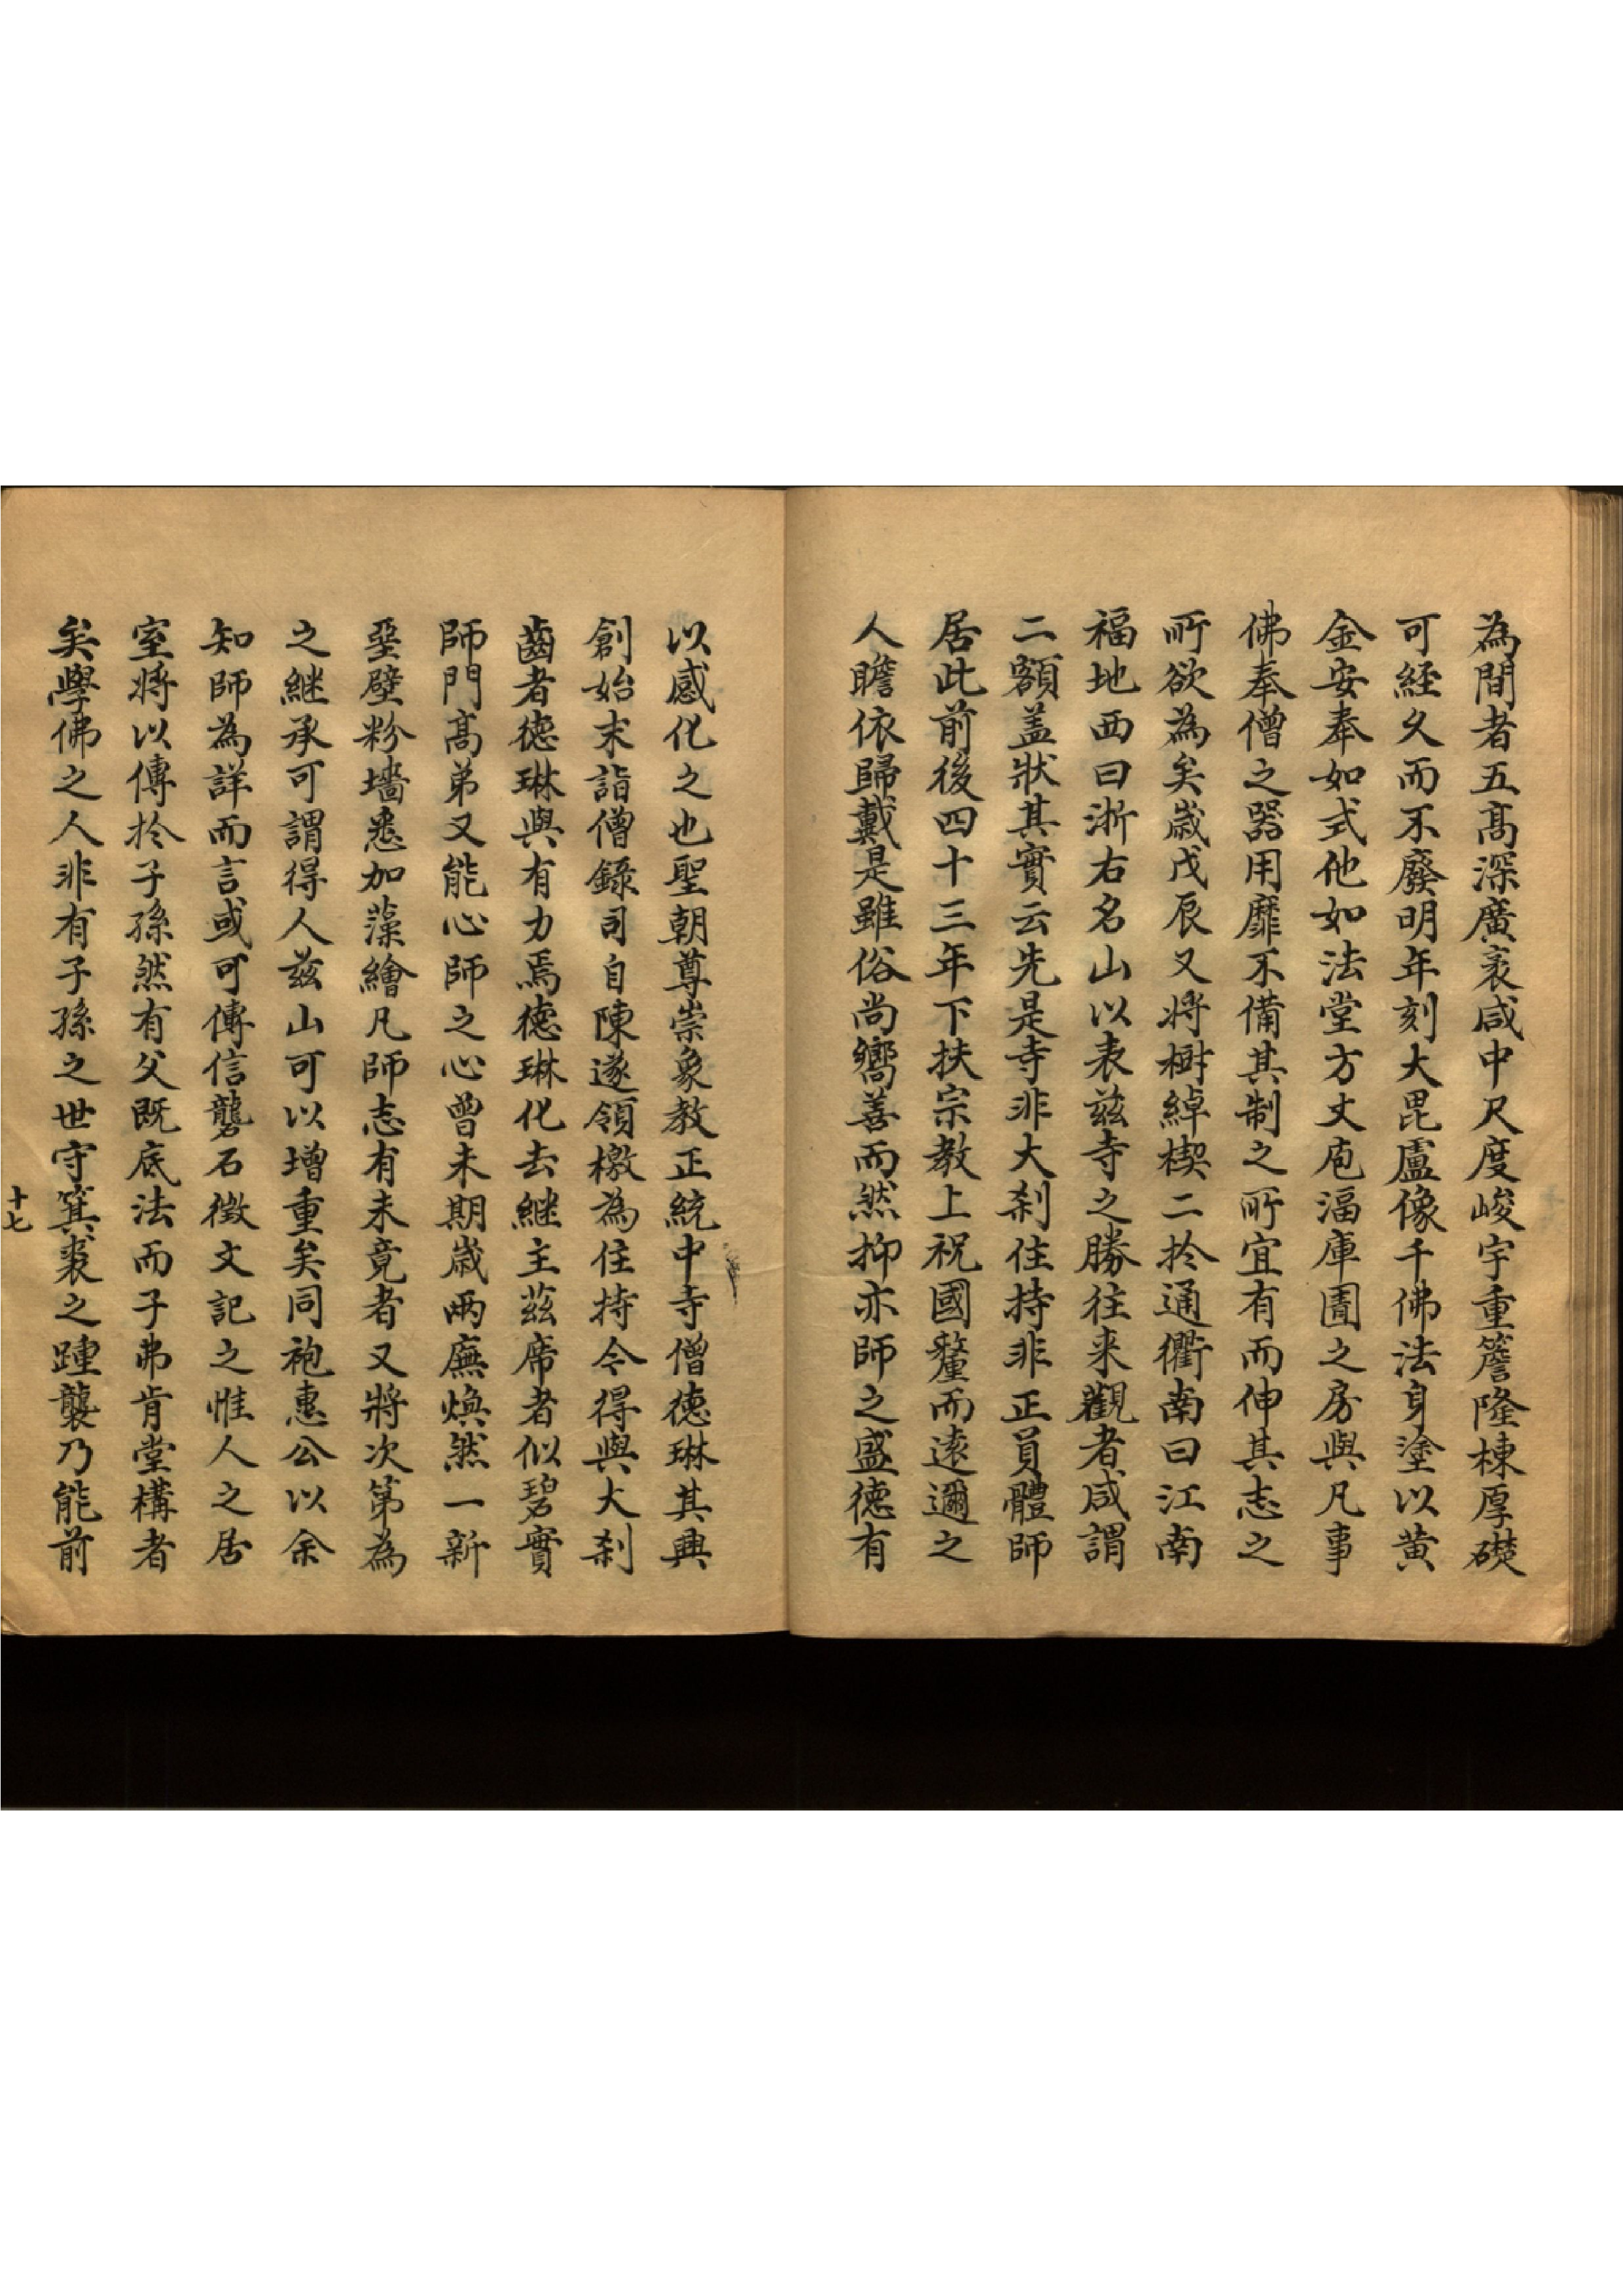 為間者五髙深廣袤咸中尺度峻宇重簷隆棟厚礎
可經久而不廢明年刻大毘盧像千佛法身塗以黄
金安奉如式他如法堂方丈庖湢庫圊之房與凡事
佛奉僧之器用靡不備其制之所宜有而伸其志之
所欲為矣歲戊辰又將樹綽楔二扵通衢南曰江南
福地西曰浙右名山以表兹寺之勝往来觀者咸謂
二額盖狀其實云先是寺非大刹住持非正員體師
居此前後四十三年下扶宗教上祝國釐而遠邇之
人瞻依歸戴是雖俗尚嚮善而然抑亦師之盛徳有
以感化之也聖朝尊崇象教正統中寺僧徳琳其興
創始末詣僧錄司自陳遂領檄為住持令得與大刹
齒者徳琳與有力焉徳琳化去継主茲席者似碧實
師門髙弟又能心師之心曾未期歲兩廡煥然一新
堊壁粉墻悉加藻繪凡師志有未竟者又將次第為
之継承可謂得人兹山可以增重矣同袍惠公以余
知師為詳而言或可傳信礱石徵文記之惟人之居
室將以傳扵子孫然有父既底法而子弗肯堂構者
矣學佛之人非有子孫之世守箕裘之踵襲乃能前
十七